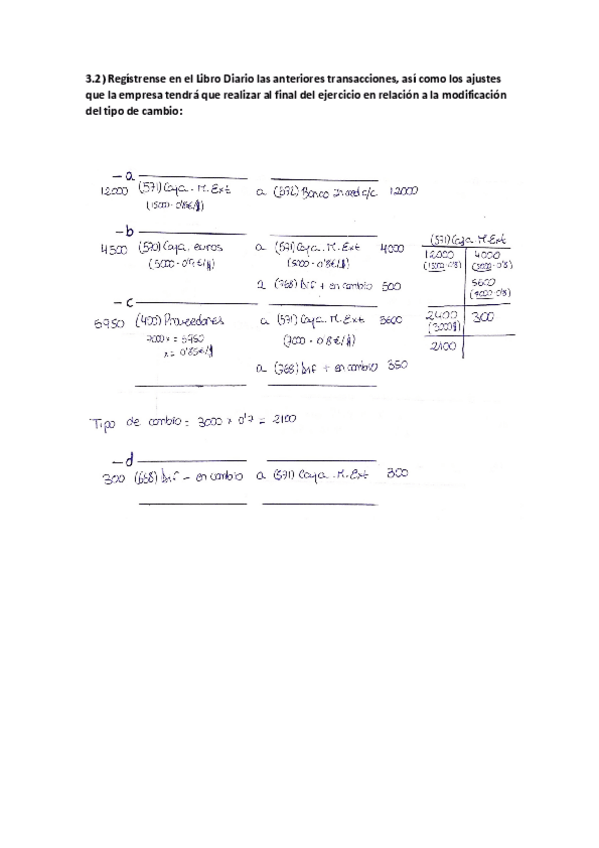 3.2) Regístrense en el Libro Diario las anteriores transacciones, así como los ajustes
que la empresa tendrá que realizar al final del ejercicio en relación a la modificación
del tipo de cambio:
a
12000 (571) Caja. M. Ext a (572) Banco c/c 12000
(15000 · 0'8€/$)
b
4500 (570) Caja. euros a (571) Caja. M. Ext 4000
(5000 · 0'9€/$) (5000 · 0'8€/$)
a (768) + en cambio 500
c
5950 (400) Proveedores a (571) Caja. M. Ext 5600
7000 x = 5950 (7000 · 0'8€/$)
x = 0'85€/$
a (768) Dif + en cambio 350
(571) Caja. M. Ext
12000 4000
(15000 · 0'8) (5000 · 0'8)
5600
(7000 · 0'8)
2400 300
(3000$)
2100
Tipo de cambio: 3000 x 0'7 = 2100
d
300 (668) Dif - en cambio a (571) Caja. M. Ext 300